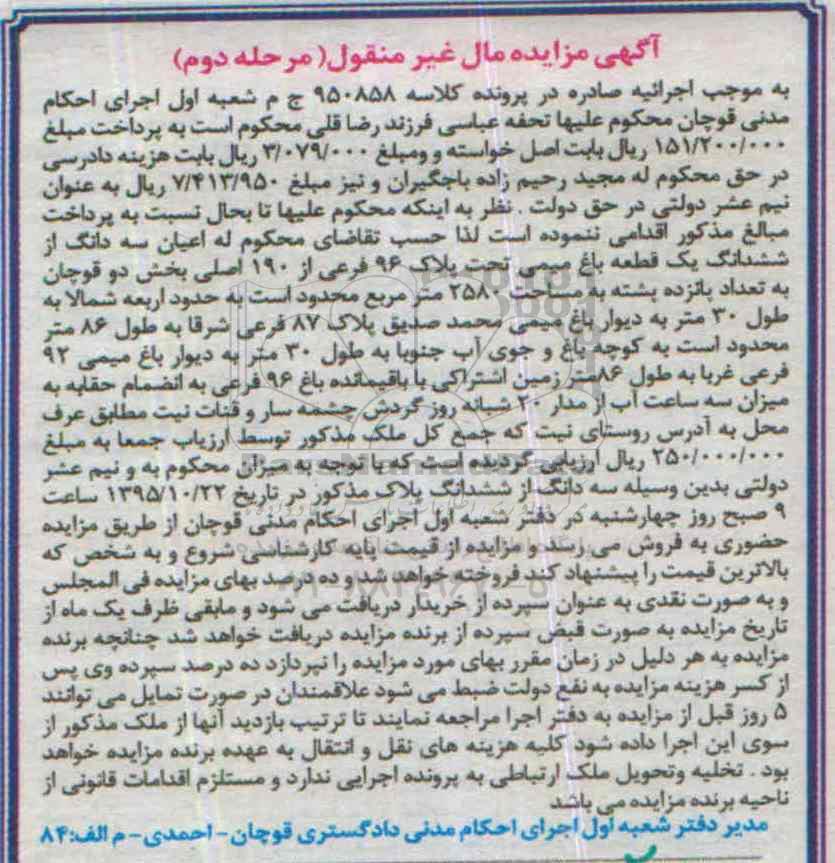 آگهی مزایده مال غیر منقول( مرحله دوم)
به موجب اجرائیه صادره در پرونده کلاسه ۹۵۰۸۵۸ ج م شعبه اول اجرای احکام
مدنی قوچان محکوم علیها تحفه عباسی فرزند رضا قلی محکوم است به پرداخت مبلغ
۱۵۱/۲۰۰/۰۰۰ ریال بابت اصل خواسته و ومبلغ ۳/۰۷۹/۰۰۰ ریال بابت هزینه دادرسی
در حق محکوم له مجید رحیم زاده باجگیران و نیز مبلغ ۷/۴۱۳/۹۵۰ ریال به عنوان
نیم عشر دولتی در حق دولت . نظر به اینکه محکوم علیها تا بحال نسبت به پرداخت
مبالغ مذکور اقدامی ننموده است لذا حسب تقاضای محکوم له اعیان سه دانگ از
ششدانگ یک قطعه باغ میمی تحت پلاک ۹۶ فرعی از ۱۹۰ اصلی بخش دو قوچان
به تعداد پانزده پشته به مساحت ۲۵۸۰ متر مربع محدود است به حدود اربعه شمالا به
طول ۳۰ متر به دیوار باغ میمی محمد صدیق پلاک ۸۷ فرعی شرقا به طول ۸۶ متر
محدود است به کوچه باغ و جوی آب جنوبا به طول ۳۰ متر به دیوار باغ میمی ۹۲
فرعی غربا به طول ۸۶متر زمین اشتراکی با باقیمانده باغ ۹۶ فرعی به انضمام حقابه به
میزان سه ساعت آب از مدار ۲۰ شبانه روز گردش چشمه سار و قنات نیت مطابق عرف
محل به آدرس روستای نیت که جمع کل ملک مذکور توسط ارزیاب جمعا به مبلغ
۲۵۰/۰۰۰/۰۰۰ ریال ارزیابی گردیده است که با توجه به میزان محکوم به و نیم عشر
دولتی بدین وسیله سه دانگ از ششدانگ پلاک مذکور در تاریخ ۱۳۹۵/۱۰/۲۲ ساعت
۹ صبح روز چهارشنبه در دفتر شعبه اول اجرای احکام مدنی قوچان از طریق مزایده
حضوری به فروش می رسد و مزایده از قیمت پایه کارشناسی شروع و به شخص که
بالاترین قیمت را پیشنهاد کند فروخته خواهد شد و ده درصد بهای مزایده فی المجلس
و به صورت نقدی به عنوان سپرده از خریدار دریافت می شود و مابقی ظرف یک ماه از
تاریخ مزایده به صورت قبض سپرده از برنده مزایده دریافت خواهد شد چنانچه برنده
مزایده به هر دلیل در زمان مقرر بهای مورد مزایده را نپردازد ده درصد سپرده وی پس
از کسر هزینه مزایده به نفع دولت ضبط می شود علاقمندان در صورت تمایل می توانند
۵ روز قبل از مزایده به دفتر اجرا مراجعه نمایند تا ترتیب بازدید آنها از ملک مذکور از
سوی این اجرا داده شود کلیه هزینه های نقل و انتقال به عهده برنده مزایده خواهد
بود . تخلیه وتحویل ملک ارتباطی به پرونده اجرایی ندارد و مستلزم اقدامات قانونی از
ناحیه برنده مزایده می باشد
مدیر دفتر شعبه اول اجرای احکام مدنی دادگستری قوچان - احمدی - م الف:۸۴